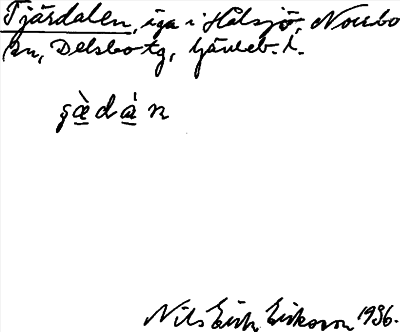 Tjärdalen, äga i Hålsjö, Norrbo
sn, Delsbo tg, Gävleb. l.
gàdán
Nils Erik Eriksson 1936.